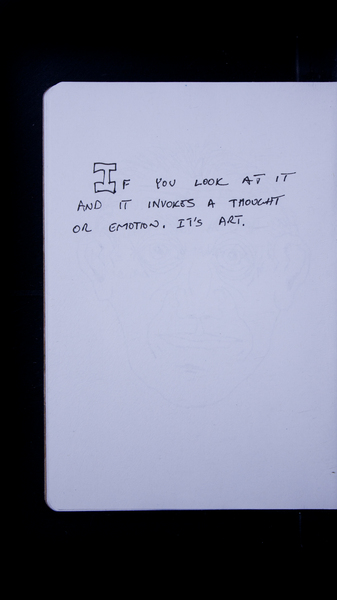 IF YOU LOOK AT IT
AND IT INVOKES A THOUGHT
OR EMOTION, IT'S ART.